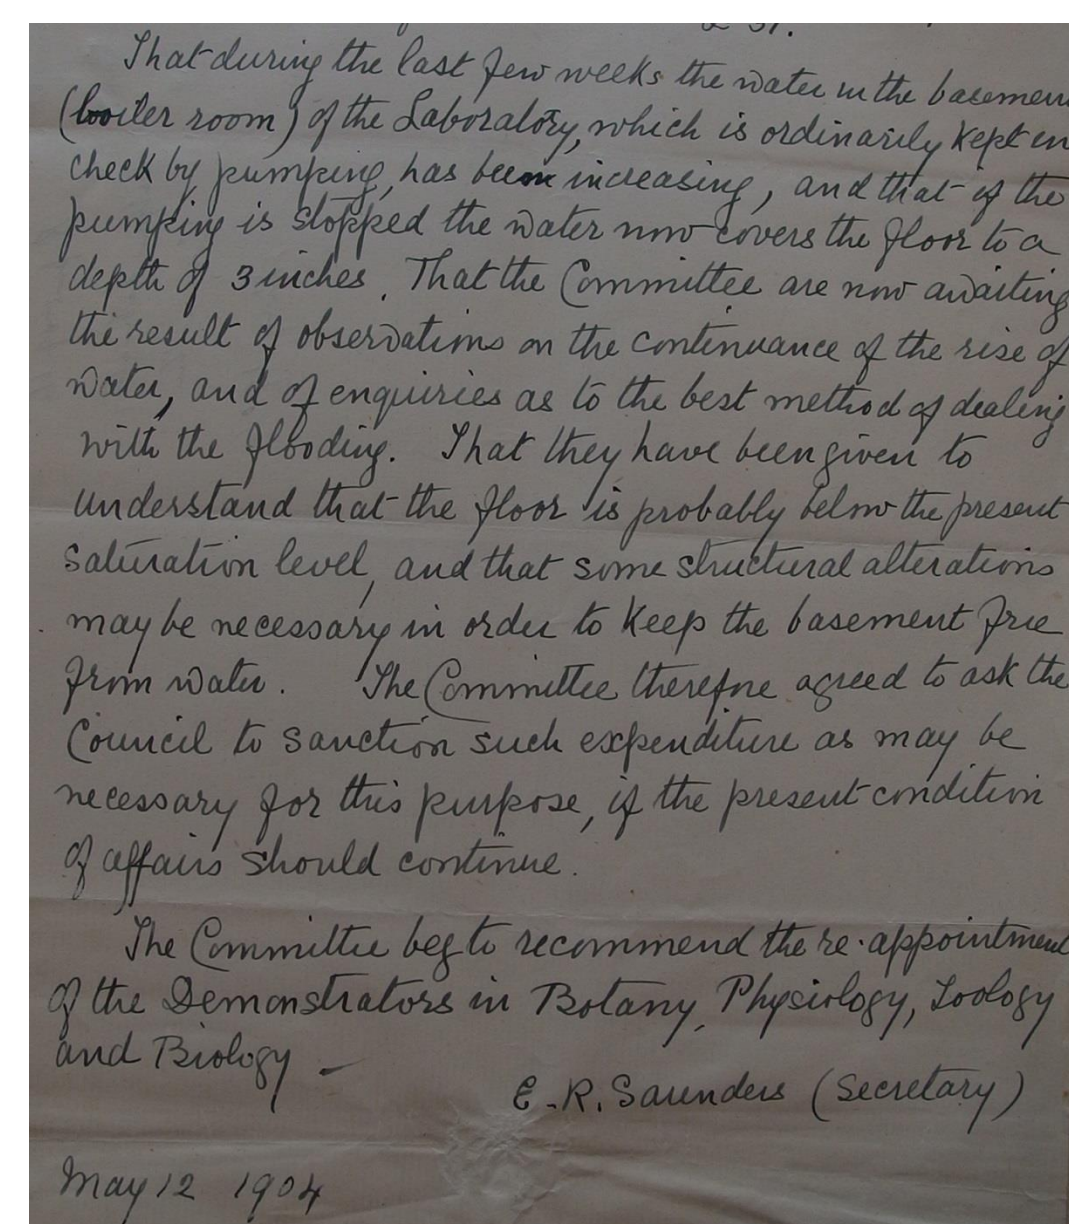 That during the last few weeks the water in the basemen
(boiler room) of the Laboratory, which is ordinarily kept in
check by pumping, has been increasing, and that if the
pumping is stopped the water now covers the floor to a
depth of 3 inches. That the Committee are now awaiting
the result of observations on the continuance of the rise of
water, and of enquiries as to the best method of dealing
with the flooding. That they have been given to
understand that the floor is probably below the present
saturation level, and that some structural alterations
may be necessary in order to keep the basement free
from water. The Committee therefore agreed to ask the
Council to sanction such expenditure as may be
necessary for this purpose, if the present condition
of affairs should continue.
The Committee beg to recommend the re-appointment
of the Demonstrators in Botany, Physiology, Zoology
and Biology –
E. R. Saunders (Secretary)
May 12 1904